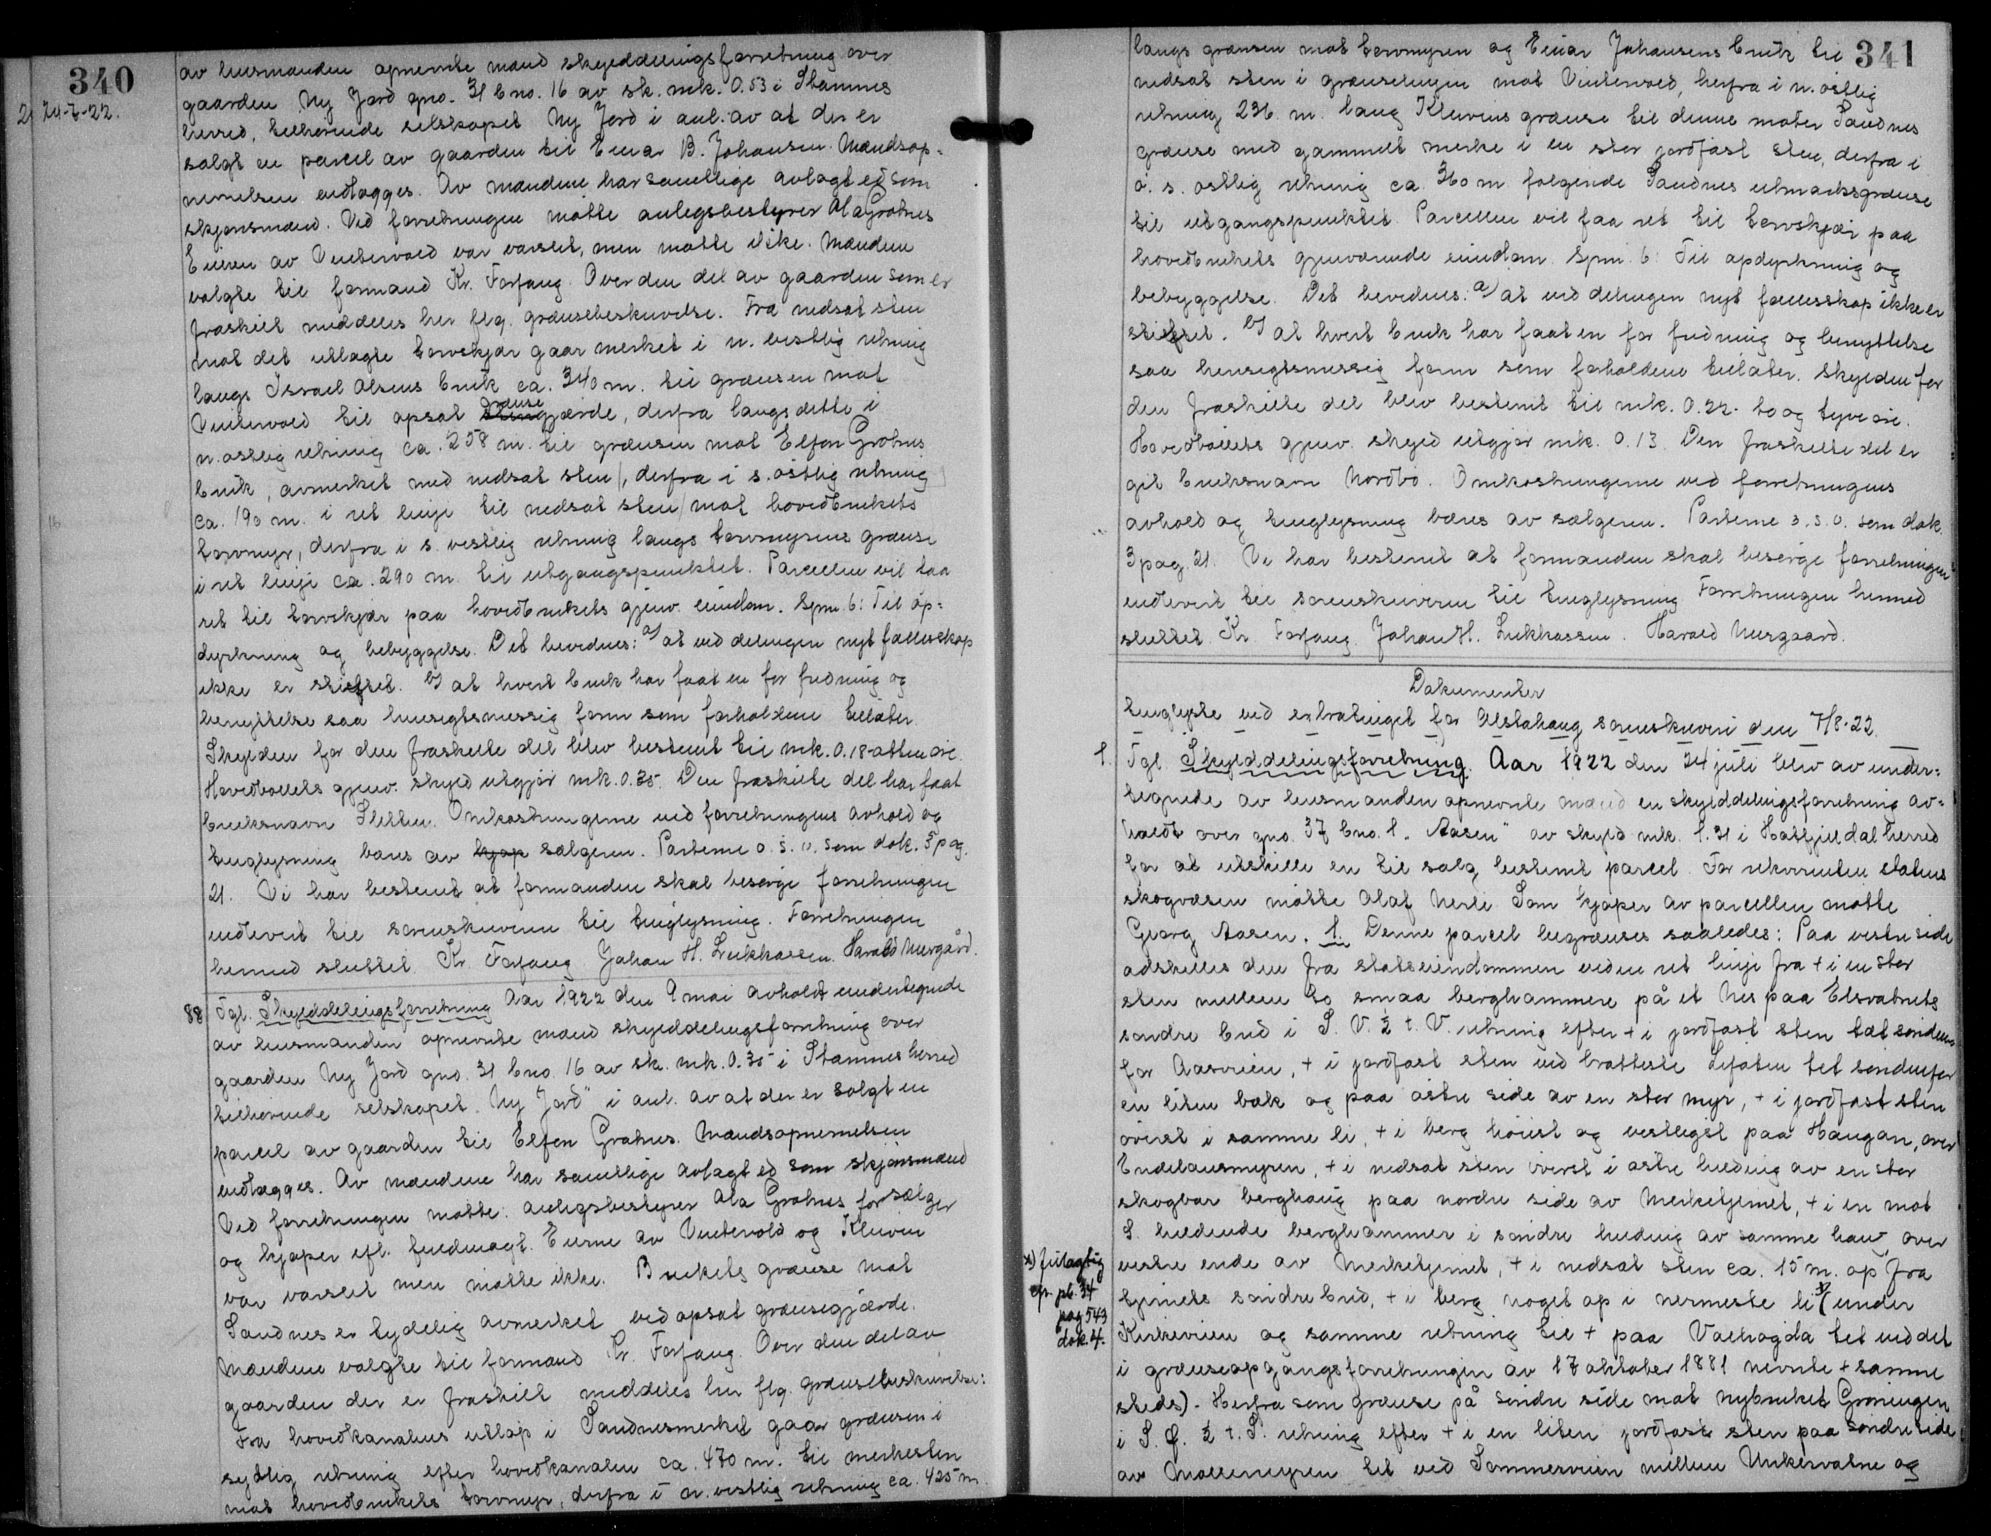 340
2) 24-7-22.
av lensmanden opnevnte mænd skylddelingsforretning over
gaarden Ny Jord gno. 31 bno. 16 av sk. mk. 0.53 i Stamnes
herred, tilhørende selskapet Ny Jord i anl. av at der er
solgt en parcel av gaarden til Einar B. Johansen. Mændsop-
nevnelsen vedlægges. Av mændene har samtlige avlagt ed som
skjønsmænd. Ved forretningen møtte anlegsbestyrer Ola Grøtnes
Eieren av Vintervold var varslet, men møtte ikke. Mændene
valgte til formand Kr. Forfang. Over den del av gaarden som er
fraskilt meddeles her flg. grænsebeskrivelse. Fra nedsat sten
mot det utlagte torvskjær gaar merket i n. vestlig retning
langs Israel Olsens bruk ca. 340 m. til grænsen mot
Vintervold til opsat grænse gjærde, derfra langs dette i
n. østlig retning ca. 258 m. til grænsen mot Elfon Grøtnes
bruk, avmerket med nedsat sten, derfra i s. østlig retning
ca. 190 m. i ret linje til nedsat sten mot hovedbrukets
torvmyr, derfra i s. vestlig retning langs torvmyrens grænse
i ret linje ca. 290 m. til utgangspunktet. Parcellen vil faa
ret til torvskjær paa hovedbrukets gjenv. eiendom. Spm. 6: Til op-
dyrkning og bebyggelse. Det bevidnes: a) at ved delingen nyt fællesskap
ikke er stiftet. b) at hvert bruk har faat en for fredning og
benyttelse saa hensigtsmessig form som forholdene tillater.
Skylden for den fraskilte del blev bestemt til mk. 0.18 - atten øre.
Hovedbølets gjenv. skyld utgjør mk. 0.35. Den fraskilte del har faat
bruksnavn Sletten. Omkostningerne ved forretningens avhold og
tinglysning bæres av kjøp sælgeren. Parterne o. s. v. som dok. 3 pag.
21. Vi har bestemt at formanden skal besørge forretningen
indlevert til sorenskriveren til tinglysning. Forretningen
hermed sluttet. Kr. Forfang. Johan H. Lukkassen. Harald Nergård.
88) Tgl. Skylddelingsforretning Aar 1922 den 9 mai avholdt undertegnede
av lensmanden opnevnte mænd skylddelingsforretning over
gaarden Ny Jord gno. 31 bno. 16 av sk. mk. 0.35 i Stamnes herred
tilhørende selskapet "Ny Jord" i anl. av at der er solgt en
parcel av gaarden til Elfon Grøtnes. Mændsopnevnelsen
vedlægges. Av mændene har samtlige avlagt ed som skjønsmænd
Ved forretningen møtte: anlegsbestyrer Ola Grøtnes for sælger
og kjøper efl. fuldmagt. Eierne av Vintervold og Kleiven
var varslet men møtte ikke. Brukets grænse mot
Sandnes er tydelig avmerket ved opsat grænsegjærde.
Mændene valgte til formand Kr. Forfang. Over den del av
gaarden der er fraskilt meddeles her flg. grænsebeskrivelse:
Fra hovedkanalens utløp i Sandnesmerket gaar grænsen i
sydlig retning efter hovedkanalen ca. 470 m. til merkesten
mot hovedbrukets torvmyr, derfra i n. vestlig retning ca. 425 m.
341
langs grænsen mot torvmyren og Einar Johansens bruk til
nedsat sten i grænselinjen mot Vintervold, herfra i n. østlig
retning 236 m. lang Kleivens grænse til denne møter Sandnes
grænse med gammelt merke i en stor jordfast sten, derfra i
ø. s. østlig retning ca. 360 m. følgende Sandnes utmarksgrænse
til utgangspunktet. Parcellen vil faa ret til torvskjær paa
hovedbrukets gjenværende eiendom. Spm. 6: Til opdyrkning og
bebyggelse. Det bevidnes: a) at ved delingen nyt fællesskap ikke er
stiftet. b) at hvert bruk har faat en for fredning og benyttelse
saa hensigtsmessig form som forholdene tillater. Skylden for
den fraskilte del blev bestemt til mk. 0.22 - to og tyve øre.
Hovedbølets gjenv. skyld utgjør mk. 0.13. Den fraskilte del er
git bruksnavn Nordbo. Omkostningerne ved forretningens
avhold og tinglysning bæres av sælgeren. Parterne o. s. v. som dok.
3 pag. 21. Vi har bestemt at formanden skal besørge forretningen
indlevert til sorenskriveren til tinglysning. Forretningen hermed
sluttet. Kr. Forfang. Johan H. Lukkassen. Harald Nergaard.
Dokumenter
tinglyste ved extratinget for Alstahaug sorenskriveri den 7/8-22.
1. Tgl. Skylddelingsforretning. Aar 1922 den 24 juli blev av under-
tegnede av lensmanden opnevnte mænd en skylddelingsforretning av-
holdt over gno. 37 bno. 1. "Aasen" av skyld mk. 1.31 i Hatfjelldal herred
for at utskille en til salg bestemt parcel. For rekvirenten statens
skogvæsen møtte Olaf Nerli. Som kjøper av parcellen møtte
Georg Aasen. 1. Denne parcel begrænses saaledes: Paa vestre side
adskilles den fra statseiendommen ved en ret linje fra + i en stor
sten mellem to smaa berghammere på et nes paa Elsvatnets
søndre bred i S. V. ½ t. V. retning efter + i jordfast sten tæt søndenfor
for Aasveien, + i jordfast sten ved bratteste Lifoten tet søndenfor
en liten bæk og paa østre side av en stor myr, + i jordfast sten
øverst i samme li, + i berg høiest og vestligst paa Haugan, over
Endelausmyren, + i nedsat sten øverst i østre helding av en stor
skogbar berghaug paa nordre side av Merketjernet, + i en mot
S. heldende berghammer i søndre helding av samme haug, over
vestre ende av Merketjernet, + i nedsat sten ca. 15 m. op fra
tjernets søndre bred, + i berg noget op i nermeste li x) (under
Kirkeveien og samme retning til + paa Valhøgda tet ved det
i grænseopgangsforretningen av 17 oktober 1881 nevnte + samme
steds). Herfra som grænse på søndre side mot nybruket Grøningen
i S. Ø. ½ t. S. retning efter + i en liten jordfast sten paa søndre side
av Mollemyren tet ved Sommerveien mellem Unkervatne og
x) feilagtig
cfr. pb. 34
pag 543
dok. 4.